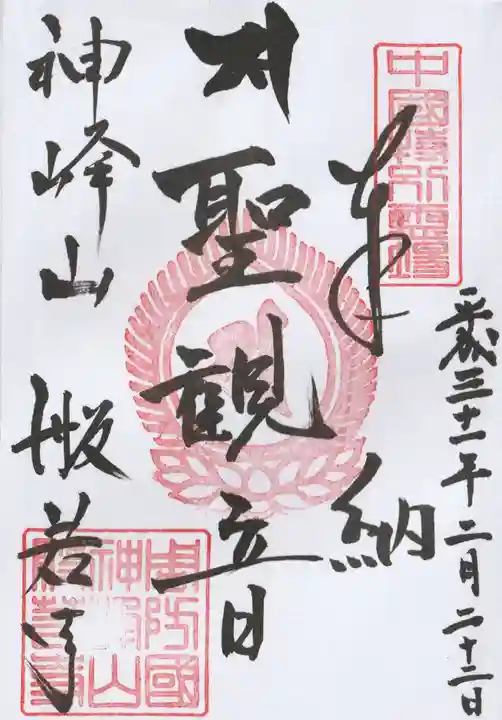 中國特別靈場
奉納
平成三十一年二月二十二日
本聖観音
神峰山
般若寺
周防國
神峰山
般若寺